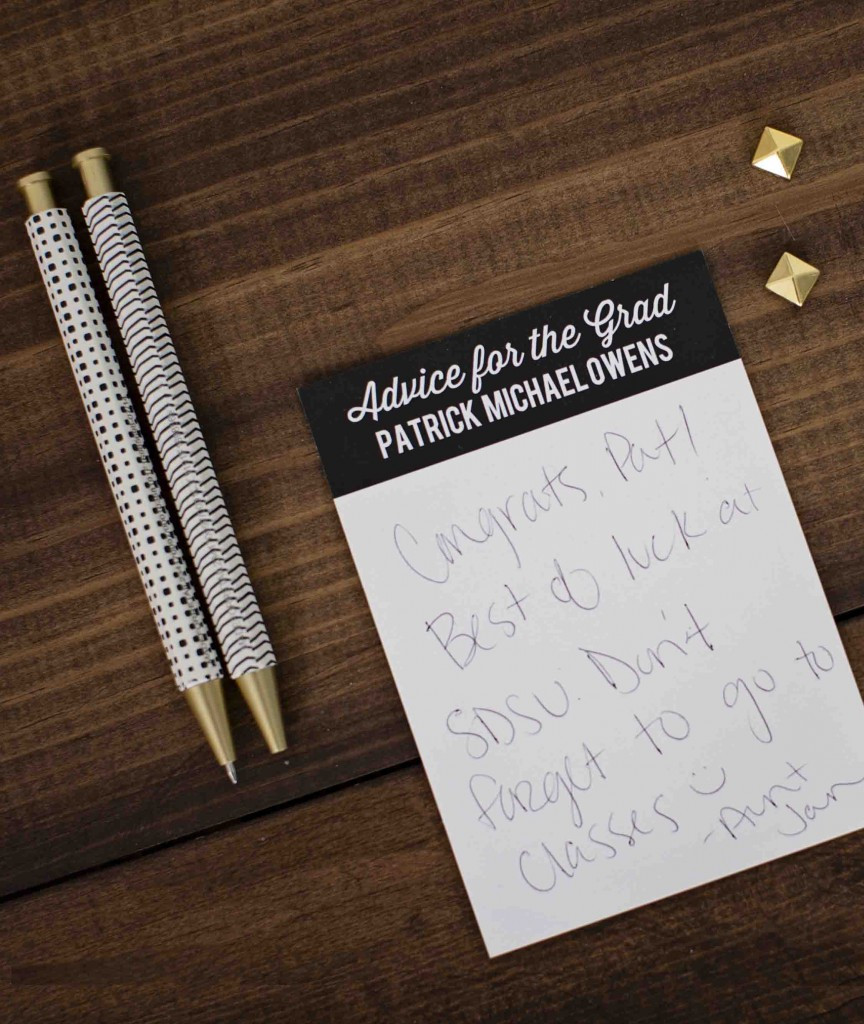 Advice for the Grad
PATRICK MICHAEL OWENS
Congrats, Pat!
Best of luck at
SDSU. Don't
forget to go to
classes ☺
-Aunt
Jan